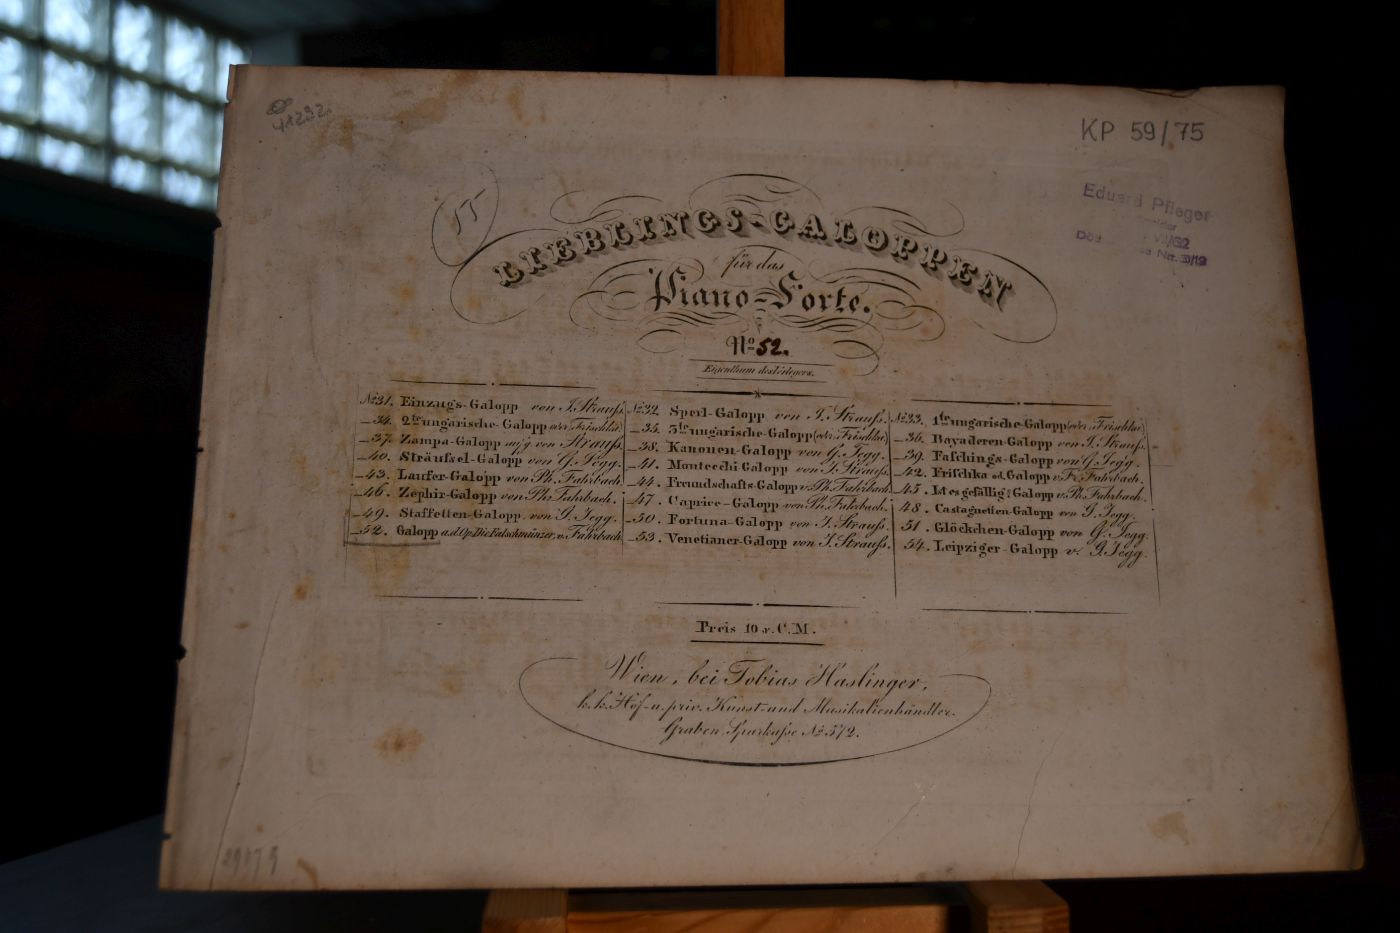 41292.
KP 59/75
Eduard Pfleger
LIEBLINGS-GALOPPEN
für das
Piano-Forte.
No 52.
Eigenthum des Verlegers.
No 31. Einzugs-Galopp von J. Strauss.
— 34. 2te ungarische-Galopp (oder Frischka).
— 37. Zampa-Galopp von Strauss.
— 40. Sträussel-Galopp von G. Jegg.
— 43. Laufer-Galopp von Ph. Fahrbach.
— 46. Zephir-Galopp von Ph. Fahrbach.
— 49. Staffetten-Galopp. von G. Jegg.
— 52. Galopp a.d. Op. Die Falschmünzer, v. Fahrbach
No 32. Sperl-Galopp von J. Strauss.
— 35. 3te ungarische-Galopp (oder Frischka)
— 38. Kanonen-Galopp von G. Jegg.
— 41. Montecchi-Galopp von J. Strauss.
— 44. Freundschafts-Galopp v. Ph. Fahrbach.
— 47. Caprice-Galopp von Ph. Fahrbach.
— 50. Fortuna-Galopp von J. Strauss.
— 53. Venetianer-Galopp von J. Strauss.
No 33. 1te ungarische-Galopp (oder Frischka).
— 36. Bayaderen-Galopp von J. Strauss.
— 39. Faschings-Galopp von G. Jegg.
— 42. Frischka od. Galopp v. Fr. Fahrbach.
— 45. Ist es gefällig? Galopp v. Ph. Fahrbach.
48. Castagnetten-Galopp von G. Jegg.
51. Glöckchen-Galopp von G. Jegg.
54. Leipziger-Galopp v. G. Jegg.
Preis 10 x. C.M.
Wien, bei Tobias Haslinger,
k.k. Hof- u. priv. Kunst- und Musikalienhändler.
Graben, Sparkasse No 572.